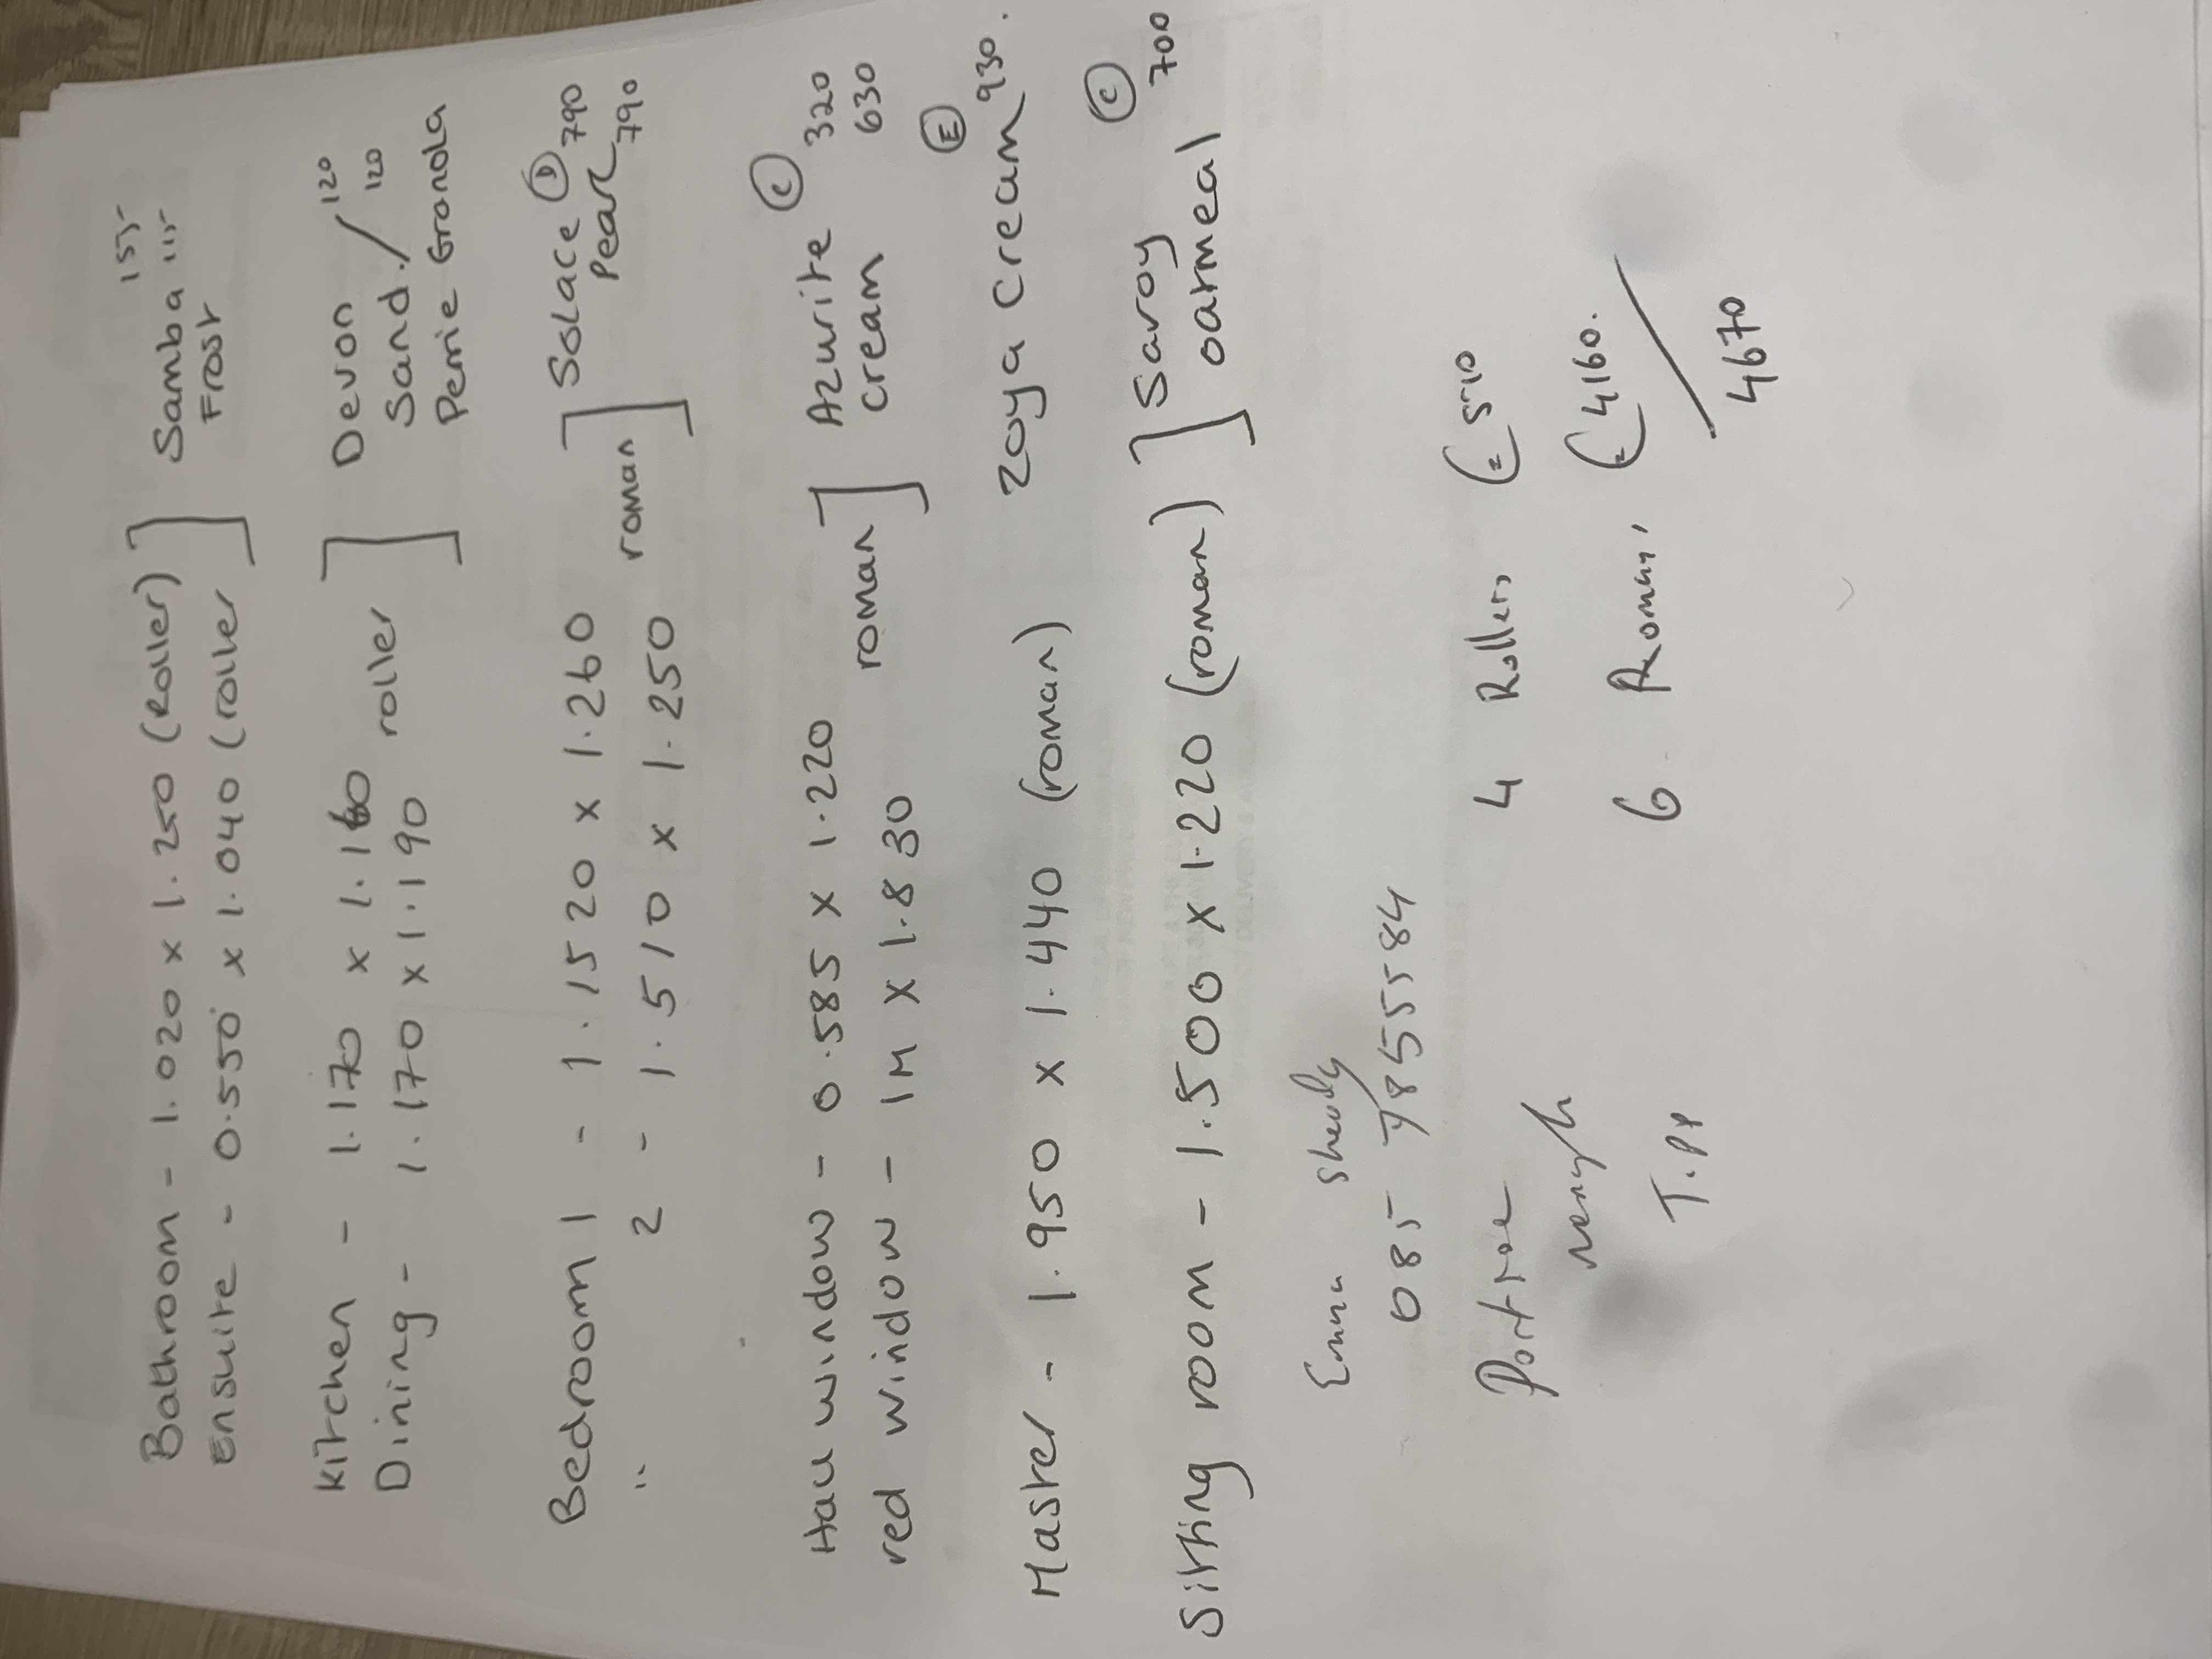 Bathroom - 1.020 x 1.250 (Roller) ] Samba 155
ensuite - 0.550 x 1.040 (roller ] Frost 115
Kitchen - 1.170 x 1.160 roller ] Devon / 120
Dining - 1.170 x 1.190 Sand. / 120
Perrie Granola
Bedroom 1 - 1.1520 x 1.260 roman ] Solace (D) 790
" 2 - 1.510 x 1.250 Pearl 790
(C)
Hall window - 0.585 x 1.220 roman ] Azurite 320
red window - 1M x 1.830 Cream 630
(E)
Master - 1.950 x 1.440 (roman) Zoya Cream 930.
(C)
Sitting room - 1.500 x 1.220 (roman) ] Savoy 700
oatmeal
Emma Sheedy
085 7855584
Portroe
Nenagh
T.pp
4 Rollers (= 510
6 Romans (= 4160.
4670